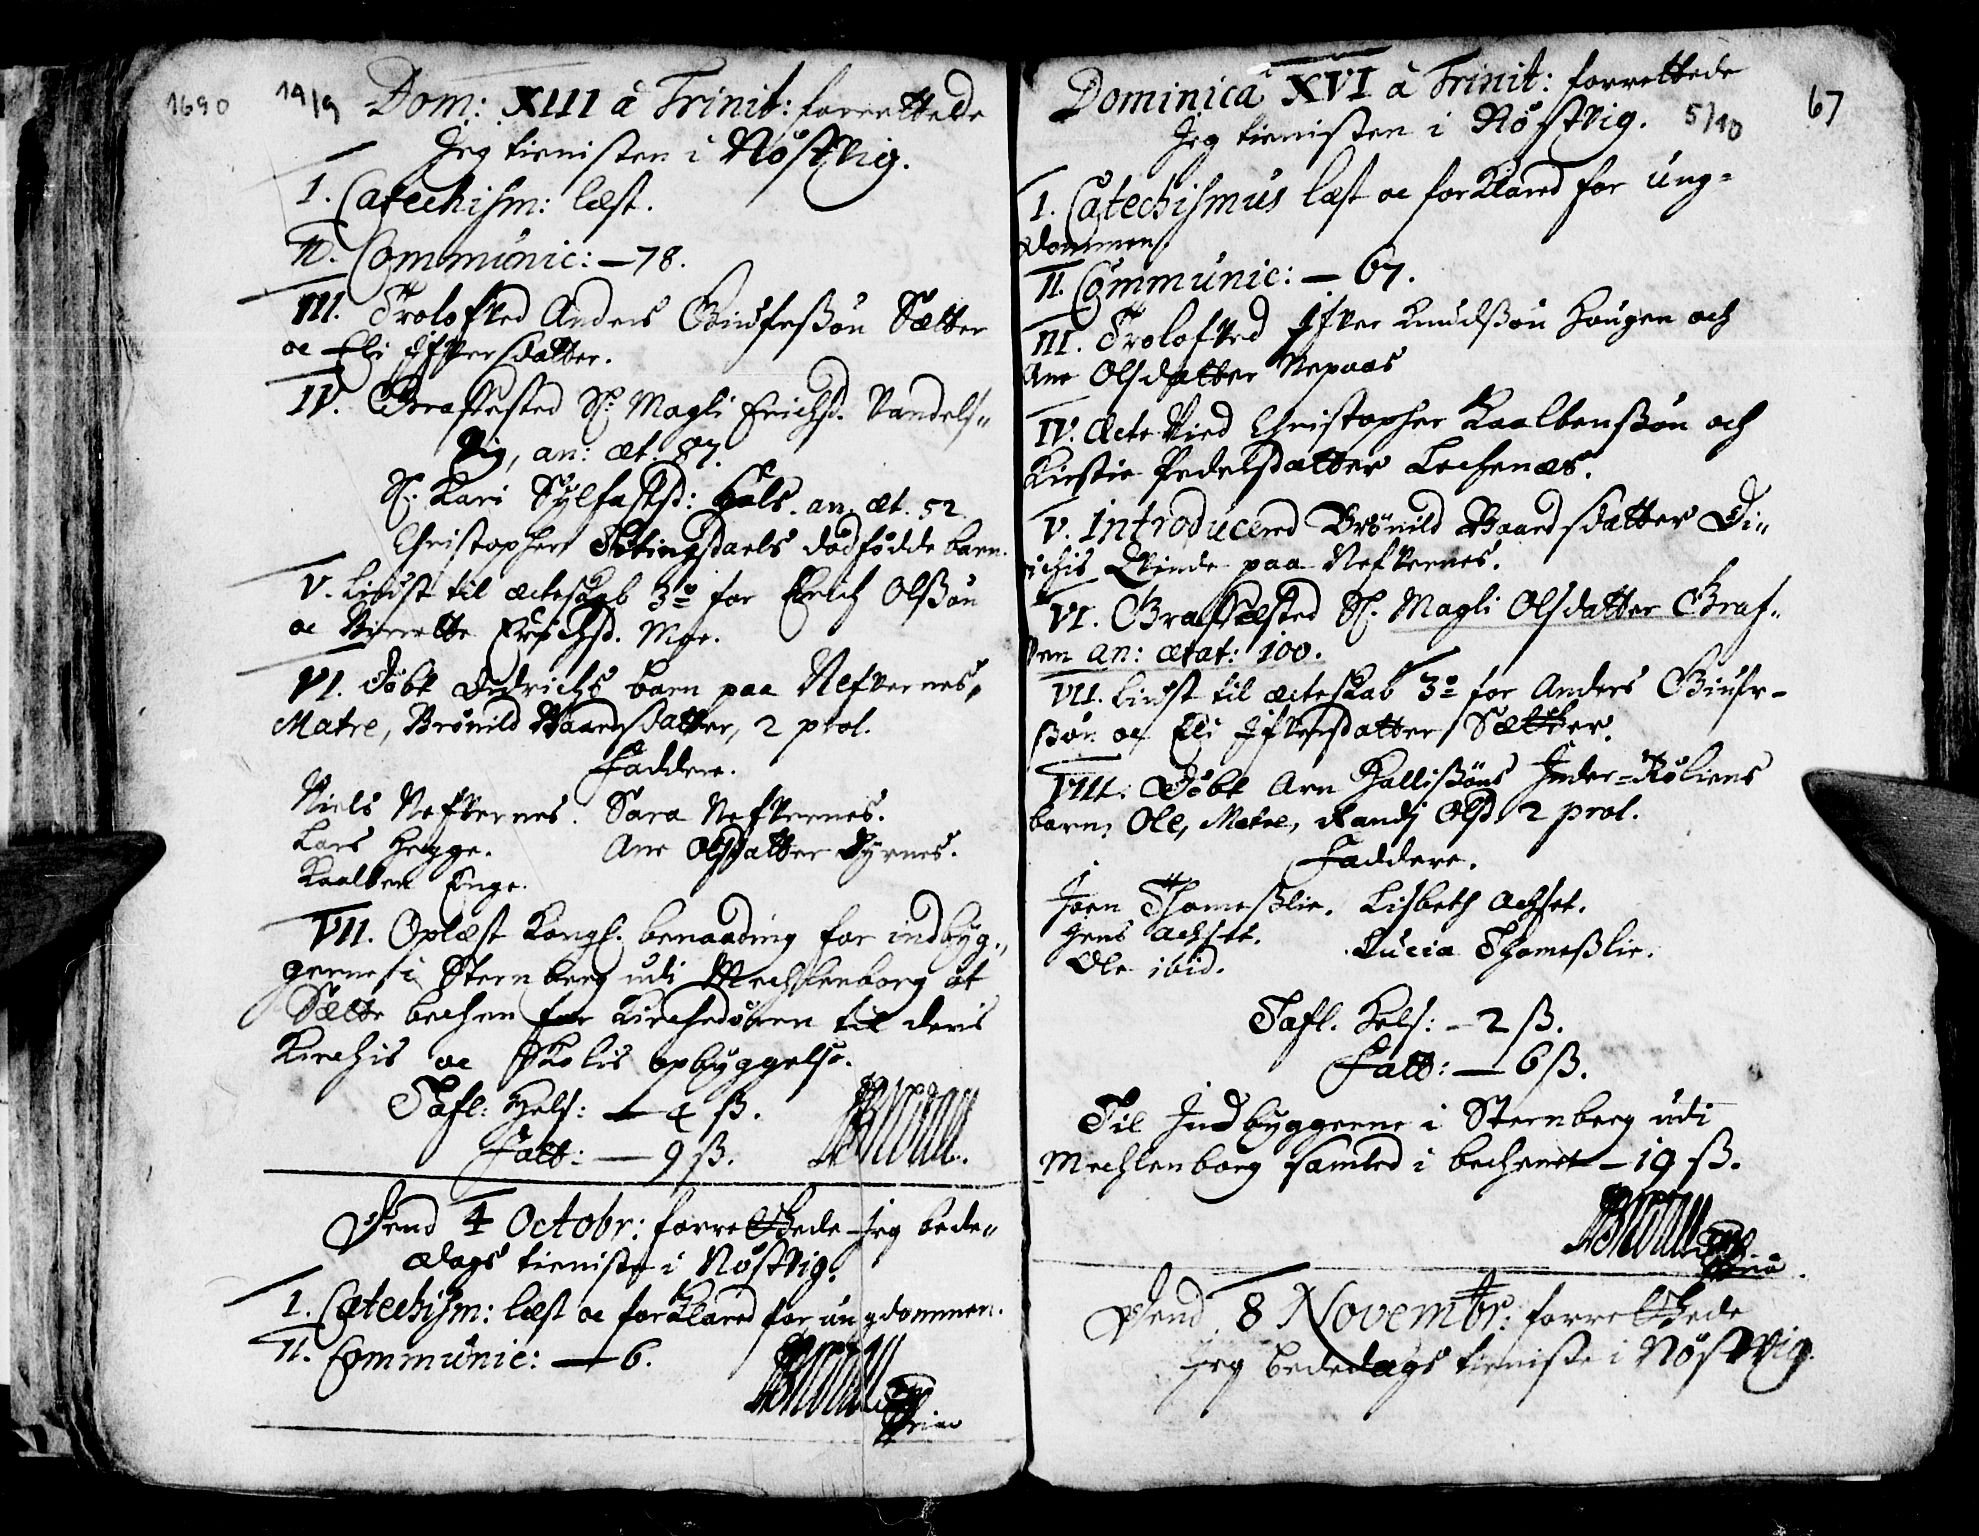 1690 14/9 Dom: XIII à Trinit: forrettede
Jeg tienisten i Røstvig.
I. Catechism: læst.
II. Communic: — 78.
III. Trolofved Anders Sætter
oc Eli Ifversdatter.
IV. Begrafvested Sl. Magli Erichsd. Vandels-
vig, an: æt. 87.
Sl. Kari Sylfastsd: Hals. an. æt. 52.
Christophers dødfødde barn.
V. Liust til æcteskab 3o for Erich Olsßøn
oc Birrette Erichsd. Moe.
VI. Døbt Didrichs barn paa Nefvernes,
Matre, Brønild Baardsdatter, 2 prol.
Faddere.
Niels Nefvernes. Sara Nefvernes.
Lars Hegge. Ane Olsdatter Dyrnes.
Enge.
VII. Oplæst Kongl. benaading for indbyg-
gerne i Sternberg udi Mechlenborg at
Sætte bechen for Kirchedøren til deris
Kirchis oc Skolis opbyggelse.
Tafl: Hels: — 4 ß.
Fatt: — 9 ß.
Dend 4 Octobr: forrettede jeg bede-
dags tieniste i Røstvig.
I. Catechism: læst oc forklared for ungdommen.
II. Communic: — 6.
67
Dominica XVI à Trinit: forrettede
Jeg tienisten i Røstvig. 5/10
I. Catechismus læst oc forklared for ung-
dommen.
II. Communic: — 67.
III. Trolofved Ifver Knudßøn Hougen och
Ane Olsdatter Nepaas
IV. Æcte Vied Christopher och
Kirstie Pedersdatter Lechenæs.
V. Introducered Brønild Baardsdatter Di-
richis Qvinde paa Nefvernes.
VI. Sl. Magli Olsdatter Graf-
ven an: ætat: 100.
VII. Liust til æcteskab 3o for Anders
ßøn oc Eli Ifversdatter Sætter.
VIII. Døbt Arn Hallißøns Inder-Røliens
barn, Ole, Matre, Randj Olsd. 2 prol.
Faddere.
Joen Thomeßlie. Lisbeth Achset.
Jens Achset. Lucia Thomeßlie.
Ole ibid.
Tafl. Hels: — 2 ß.
Fatt: — 6 ß.
Til Indbyggerne i Sternberg udi
Mechlenborg samled i bechenet — 19 ß.
Dend 8 Novembr: forrettede
jeg bededags tieniste i Røstvig.